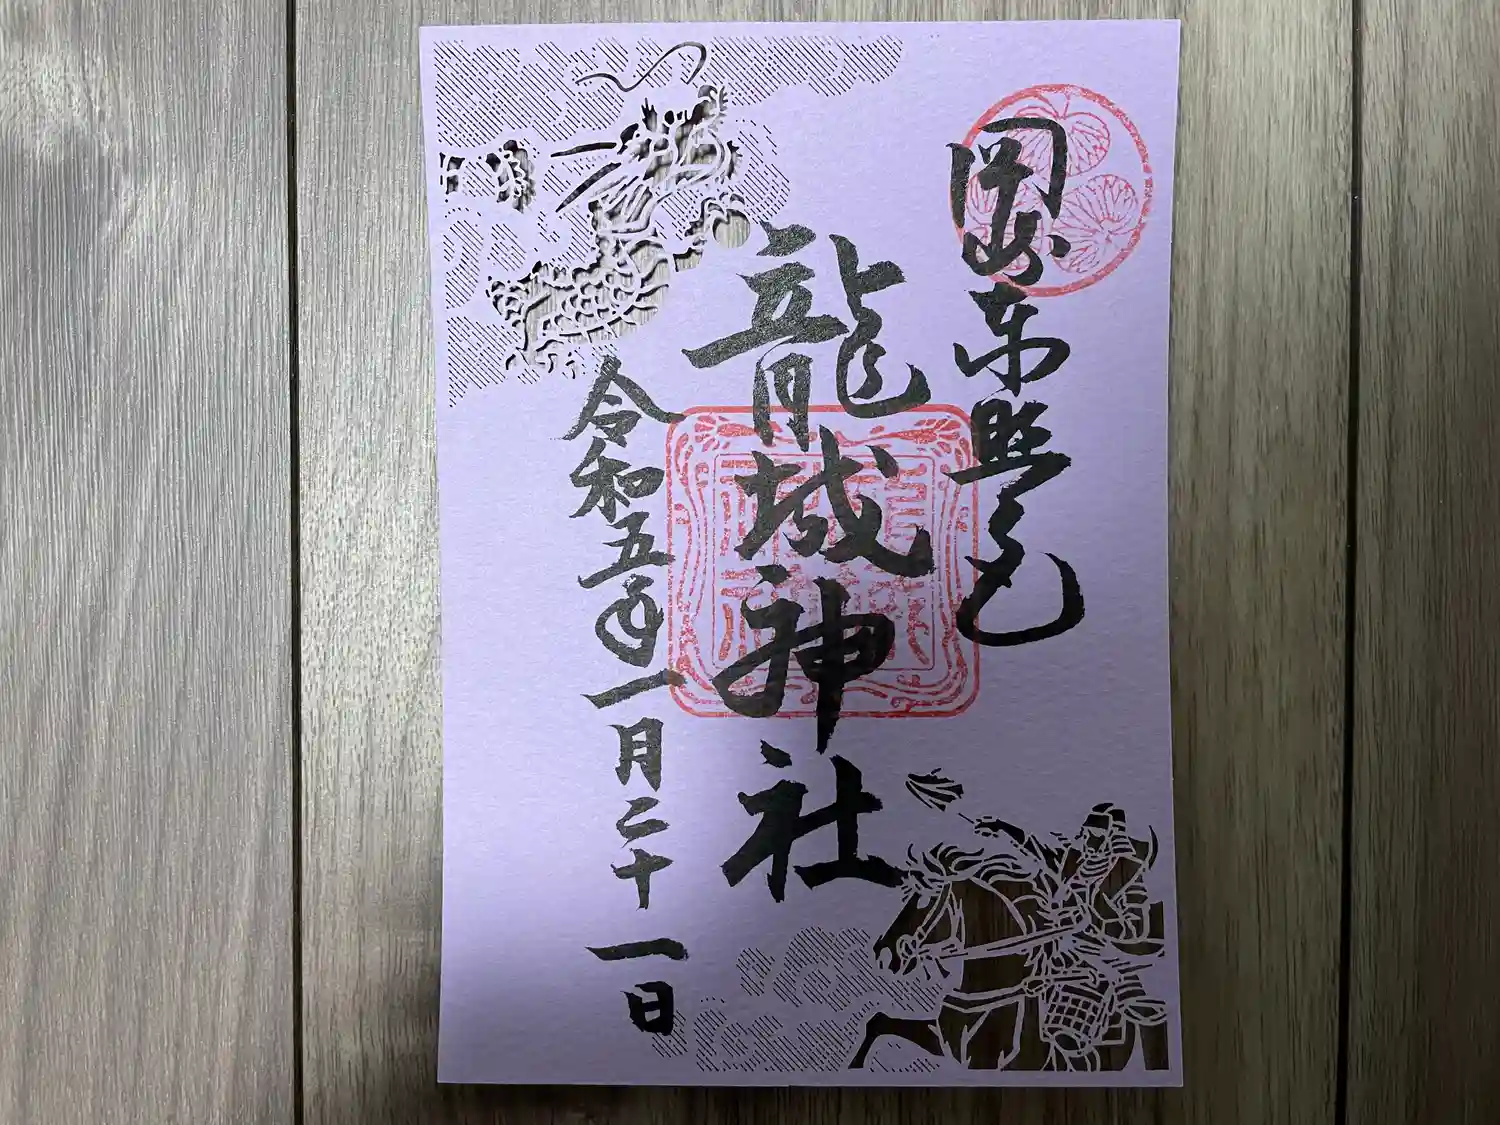 岡崎東照宮
龍城神社
令和五年一月二十一日